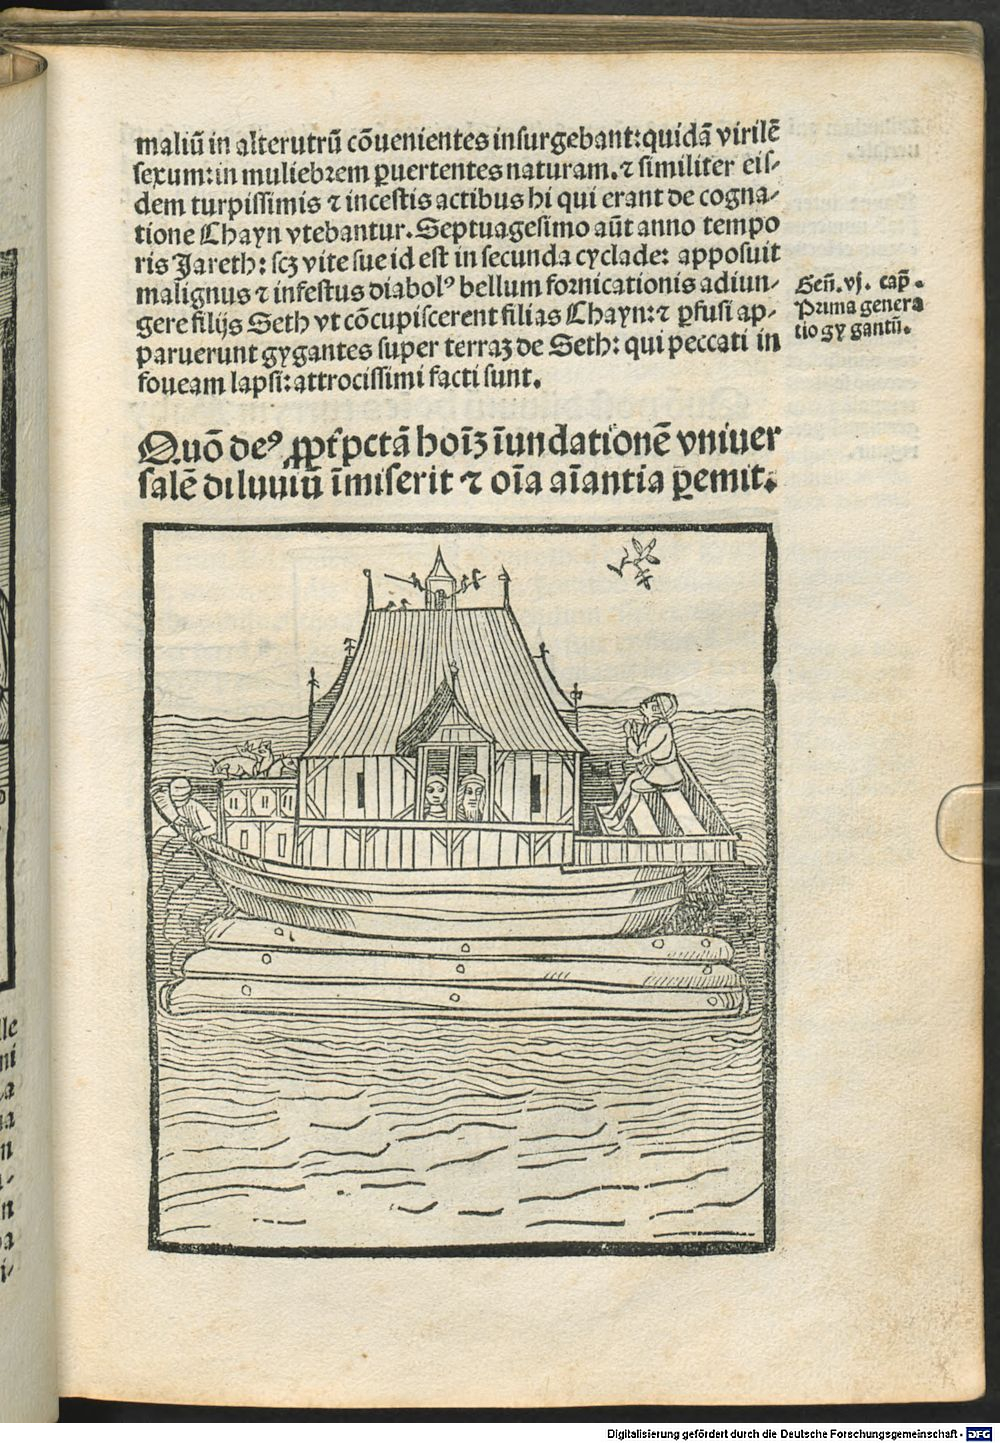 maliū in alterutrū cōuenientes insurgebant: quidā virilē
sexum: in muliebrem ꝑuertentes naturam. ⁊ similiter eis⸗
dem turpissimis ⁊ incestis actibus hi qui erant de cogna⸗
tione Chayn vtebantur. Septuagesimo aūt anno tempo
ris Jareth: scꝫ vite sue id est in secunda cyclade: apposuit
malignus ⁊ infestus diabolꝰ bellum fornicationis adiun⸗
gere filijs Seth vt cōcupiscerent filias Chayn: ⁊ ꝓfusi ap⸗
paruerunt gygantes super terraꝫ de Seth: qui peccati in
foueam lapsi: attrocissimi facti sunt.
Geñ. vj. cap̄.
Prima genera
tio gygantū.
Quō deꝰ ꝓpt̄ pctā hoīꝫ īundationē vniuer
salē diluuiū īmiserit ⁊ oīa aīantia ꝑemit.
lle
ni
a
na
n
n
i⸗
Digitalisierung gefördert durch die Deutsche Forschungsgemeinschaft - DFG